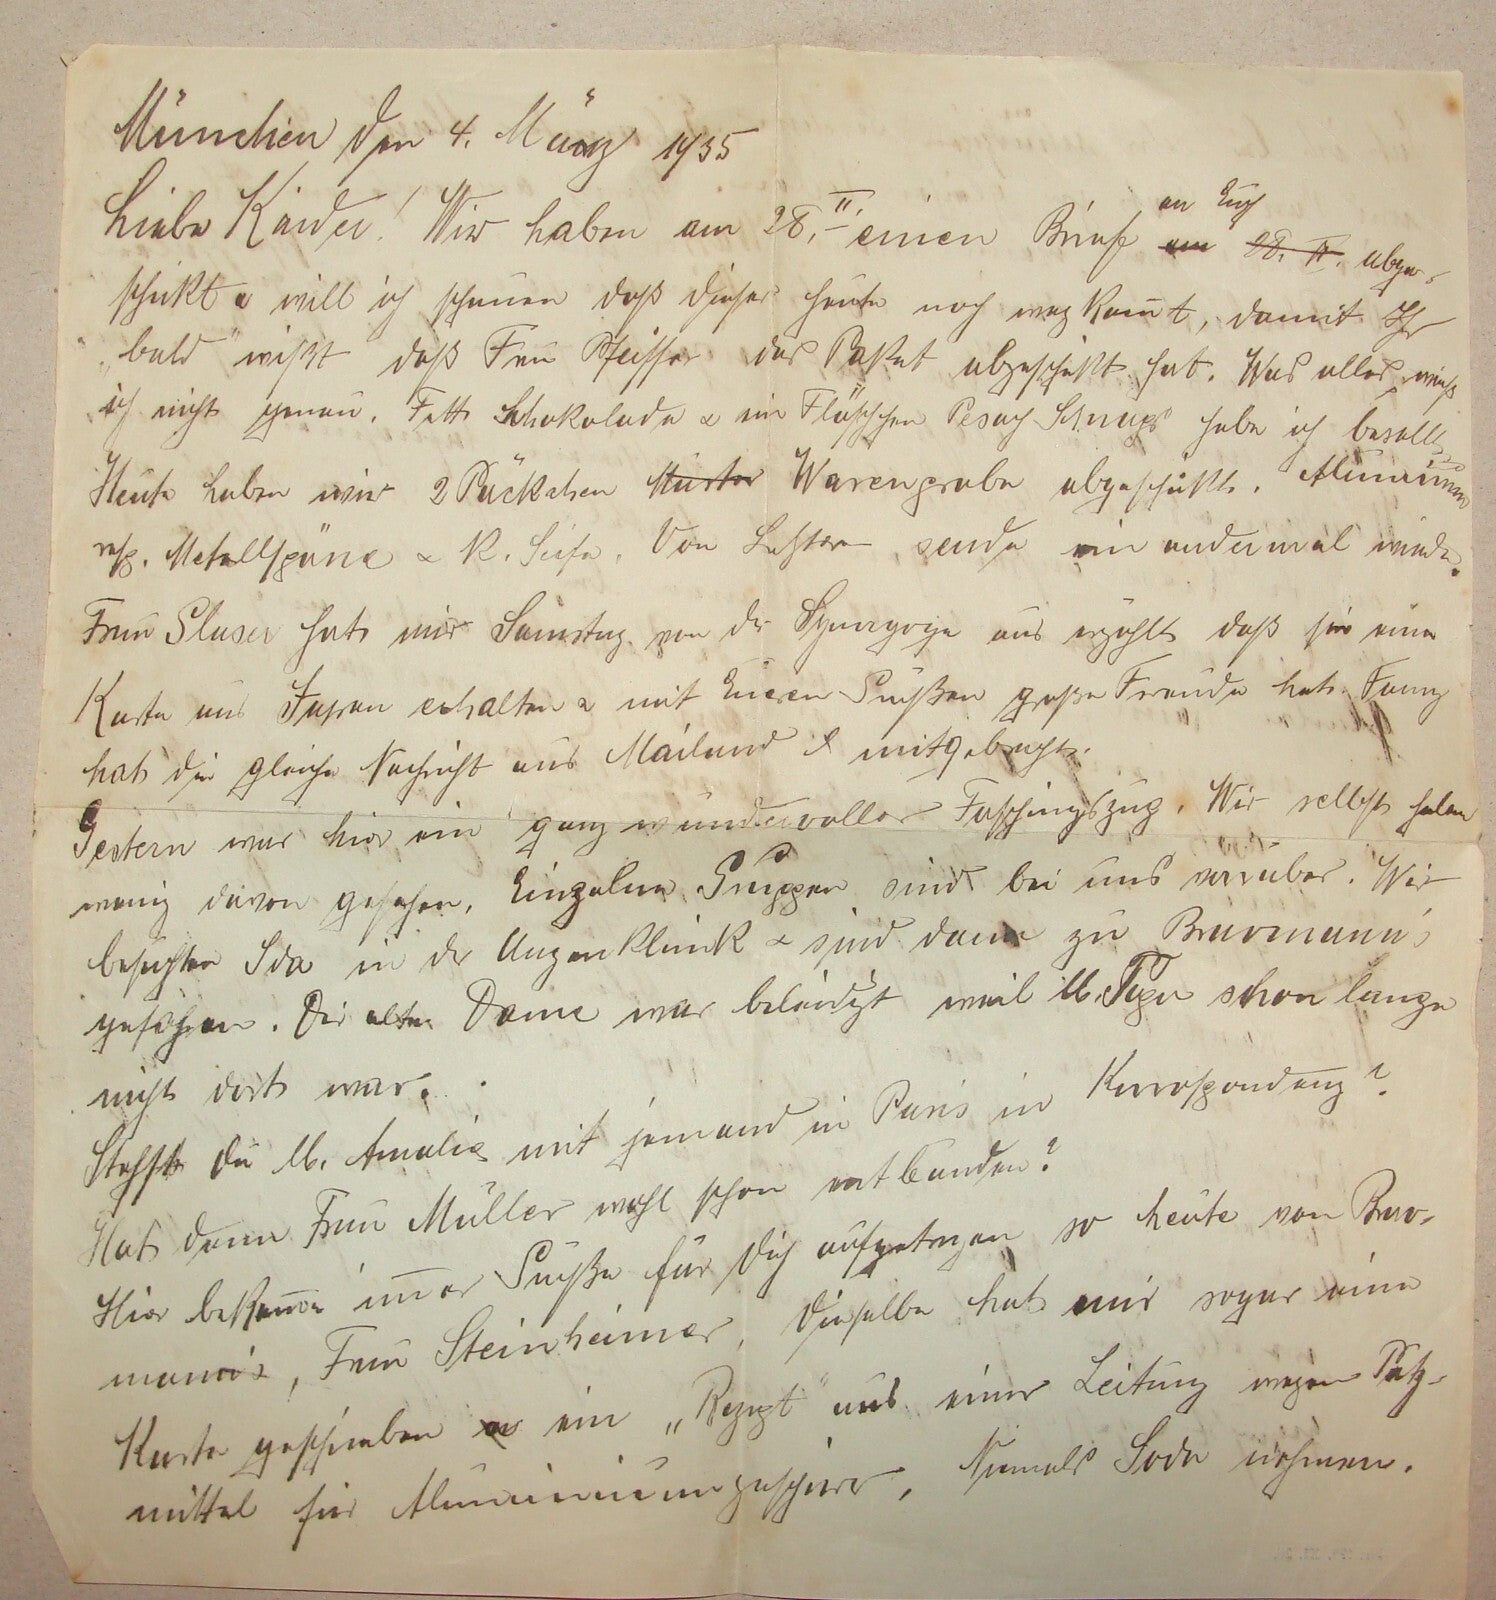 München den 4. März 1935
Liebe Kinder! Wir haben am 28. II. einen Brief an Euch abge-
schickt & will ich schauen daß dieser heute noch weg kom̅t, damit Ihr
bald wißt daß Frau Pfeiffer das Paket abgeschickt hat. Was alles weiß
ich nicht genau. Fett Schokolade & ein Fläschchen Pesach Schnaps habe ich bestellt
Heute haben wir 2 Päckchen Muster Warenprobe abgeschickt. Aluminium
resp. Metallspäne & K. Seife. Von Letzterer sende ein andermal wieder.
Frau Glaser hat mir Samstag von der Synagoge aus erzählt daß sie eine
Karte aus Japan erhalten & mit Eueren Grüßen große Freude hat. Fanny
hat die gleiche Nachricht aus Mailand mitgebracht.
Gestern war hier ein ganz wundervoller Faschingszug. Wir selbst haben
wenig davon gesehen. Einzelne Gruppen sind bei uns vorüber. Wir
besuchten Ida in der Augenklinik & sind dann zu Bravmann's
gefahren. Die alte Dame war beleidigt weil lb. schon lange
nicht dort war.
Steht die lb. Amalie mit jemand in Paris in Korrespondenz?
Hat denn Frau Müller wohl schon entbunden?
Hier bekom̅e im̅er Grüße für Dich aufgetragen so heute von Brav-
mann's, Frau Steinheimer, dieselbe hat mir sogar eine
Karte geschrieben ein „Rezept" aus einer Zeitung wegen Putz-
mittel für Aluminiumgeschirr, Niemals Soda nehmen.